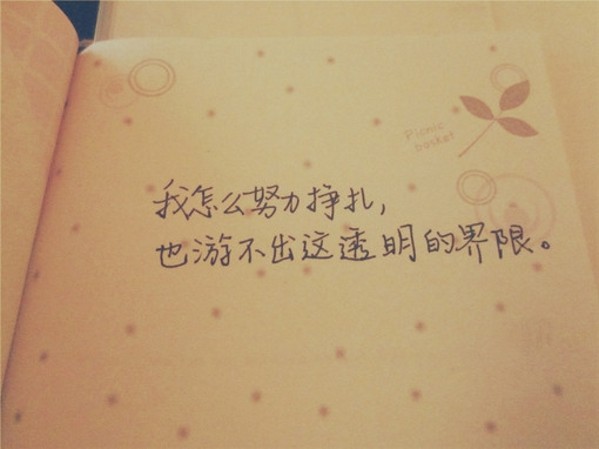 Picnic
basket
我怎么努力挣扎,
也游不出这透明的界限。